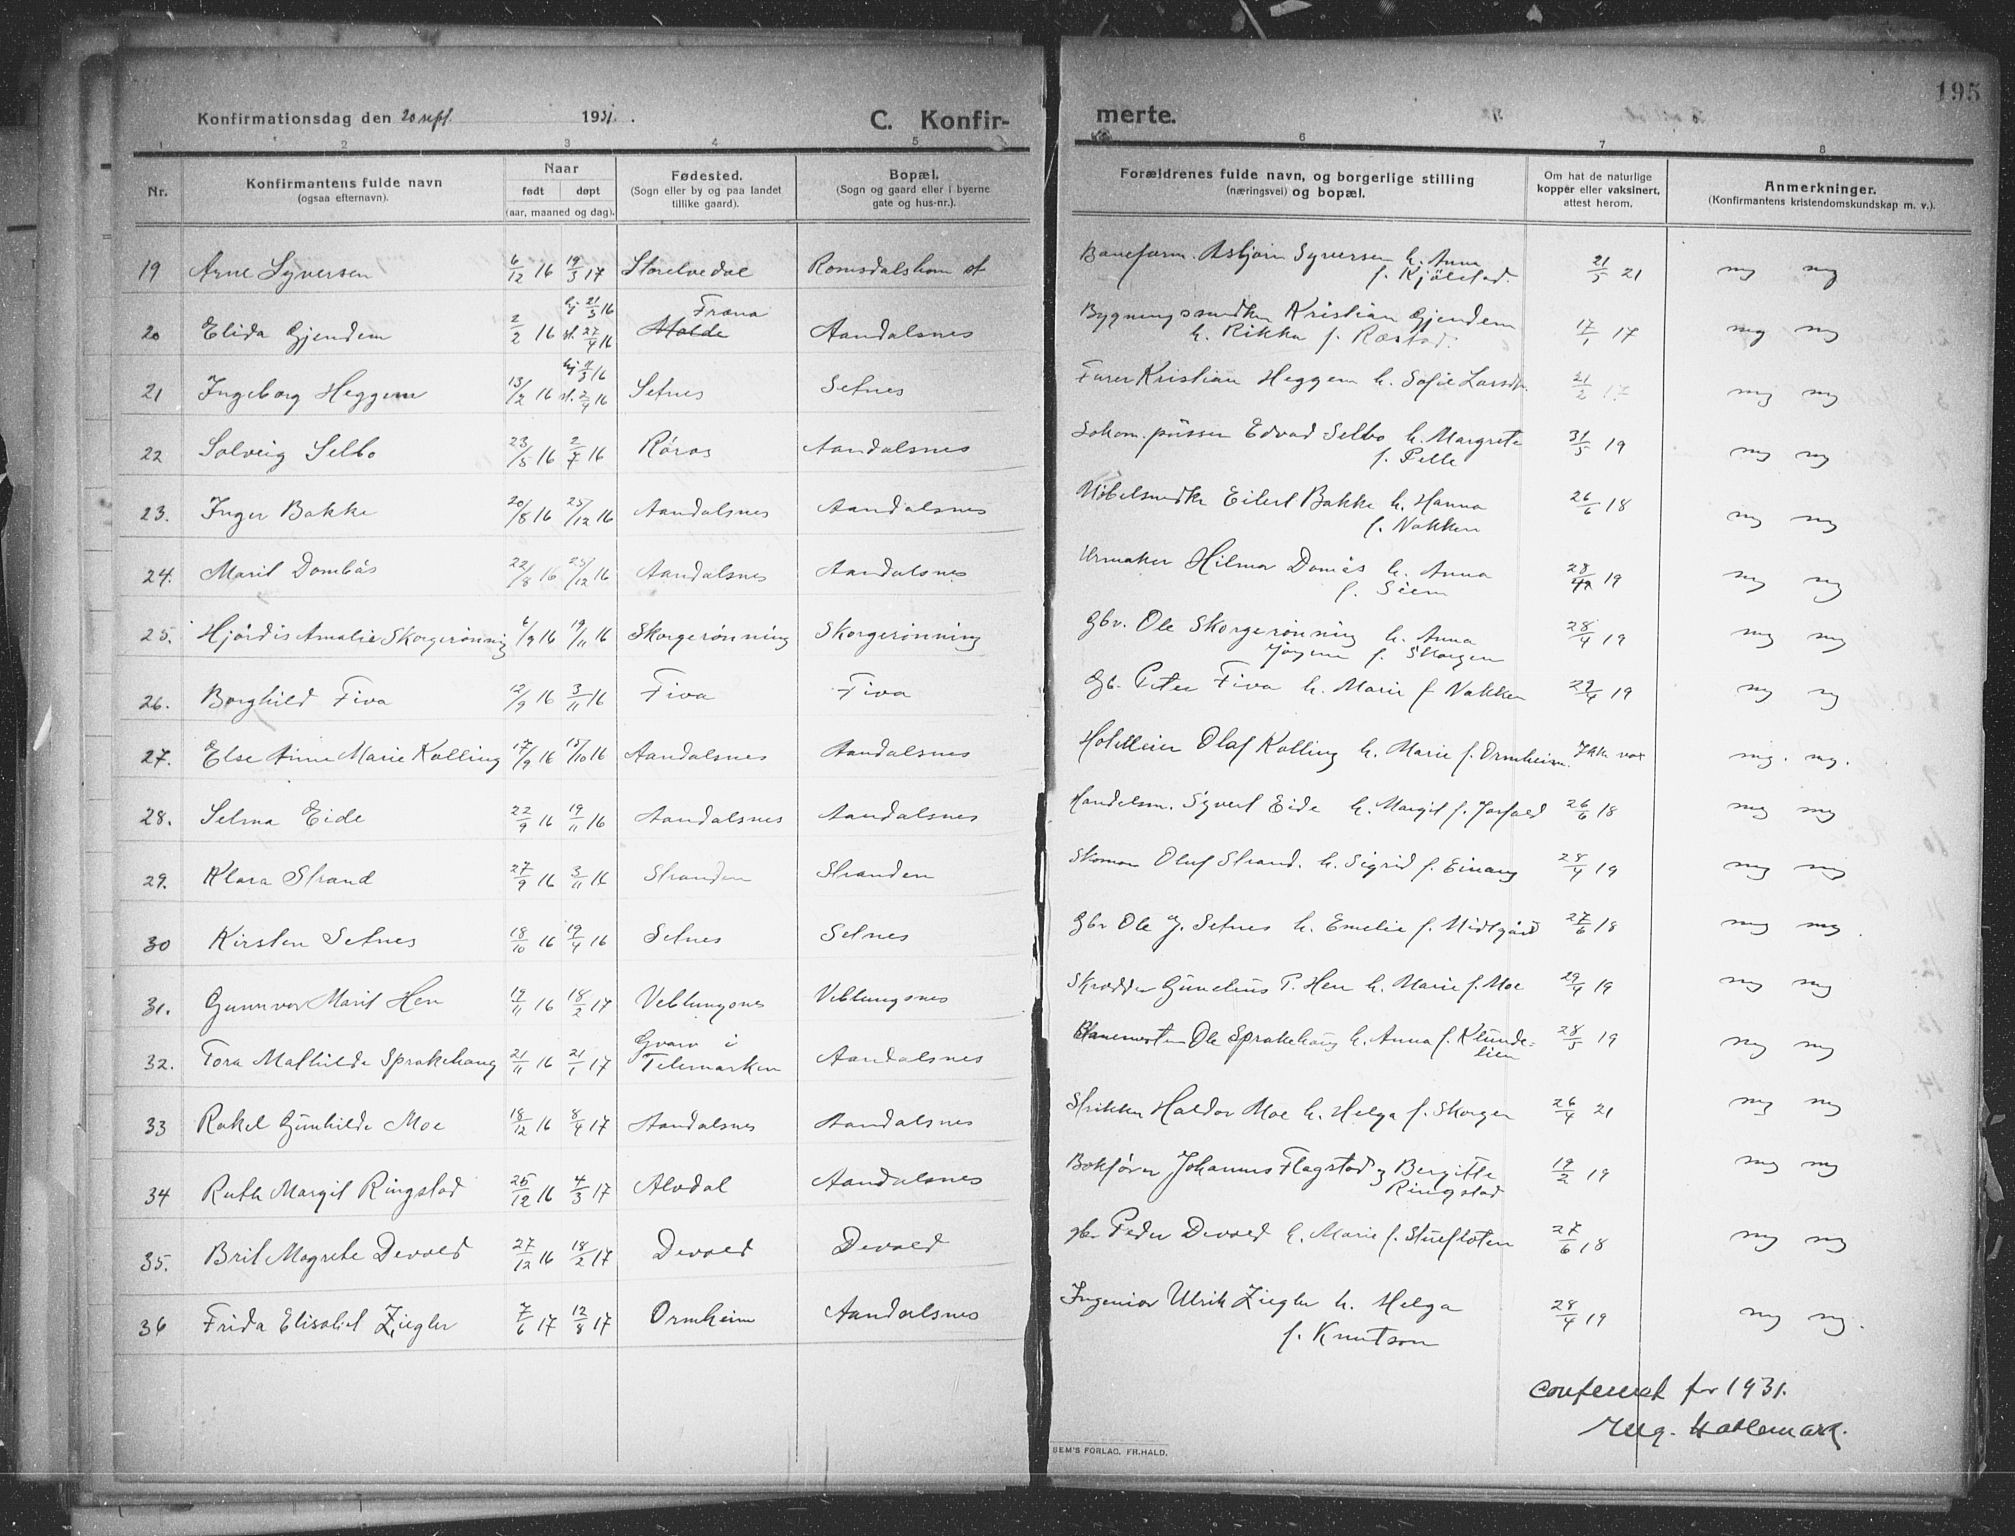 195
Konfirmationsdag den 20 sept. 1931. C. Konfir- merte.
1 2 3 4 5 6 7 8
Nr. Konfirmantens fulde navn (ogsaa efternavn). Naar født døpt (aar, maaned og dag). Fødested. (Sogn eller by og paa landet tillike gaard). Bopæl. (Sogn og gaard eller i byerne gate og hus-nr.). Forældrenes fulde navn, og borgerlige stilling (næringsvei) og bopæl. Om hat de naturlige kopper eller vaksinert, attest herom. Anmerkninger. (Konfirmantens kristendomskundskap m. v.).
19 Arne Syversen 6/12 16 19/3 17 Storelvedal Romsdalshorn st Baneform. Asbjørn Syversen h. Anna f. Kjølstad. 21/5 21 mg mg
20 Elida Gjendem 2/2 16 hj 21/3 16 st. 27/4 16 Molde Fræna Aandalsnes Bygningssnedker Kristian Gjendem h. Rikka f. Ræstad. 17/1 17 mg mg
21 Ingeborg Heggem 13/2 16 hj 11/3 16 st. 2/4 16 Setnes Setnes Furer Kristian Heggem h. Sofie Larsdtr. 21/2 17 mg mg
22 Solveig Selbo 23/5 16 2/7 16 Røros Aandalsnes Lokom. pusser Edvad Selbo h. Margrete f. Pelle 31/5 19 mg mg
23. Inger Bakke 20/8 16 25/12 16 Aandalsnes Aandalsnes Møbelsnedkr Eilert Bakke h. Hanna f. Nakken 26/6 18 mg mg
24. Marit Dombås 22/8 16 25/12 16 Aandalsnes Aandalsnes Urmaker Hilmar Domås h. Anna f. Siem 28/4 19 mg mg
25. Hjördis Amalie Skorgerønning 6/9 16 19/11 16 Skorgerønning Skorgerønning Gbr. Ole Skorgerønning h. Anna Jørgine f. Skorgen 28/4 19 mg mg
26. Borghild Fiva 12/9 16 3/11 16 Fiva Fiva Gb. Peter Fiva h. Marie f Nakken 29/4 19 mg mg
27. Else Anne Marie Kolling 17/9 16 15/10 16 Aandalsnes Aandalsnes Hotelleier Olaf Kolling h. Marie f. Ormheim. Ikke vax mg. mg.
28. Selma Eide 22/9 16 19/11 16 Aandalsnes Aandalsnes Handelsm. Syvert Eide h. Margit f. 26/6 18 mg mg
29. Klara Strand 27/9 16 3/11 16 Stranden Stranden Skomar Oluf Strand. h. Sigrid f. Einang 28/4 19 mg mg
30 Kirsten Setnes 18/10 16 19/4 16 Setnes Setnes Gbr Ole J. Setnes h. Emelie f. Midtgård 27/6 18 mg mg.
31. Gunnvor Marit Hen 19/11 16 18/2 17 Veblungsnes Veblungsnes Skrædder Gunelius P. Hen h. Marie f. Moe 29/4 19 mg mg
32. Tora Mathilde Sprakehaug 21/11 16 21/1 17 Gvarv i Telemarken Aandalsnes Banemester Ole Sprakehaug h. Anna f. Klunde- lien 28/5 19 mg mg
33 Rakel Gunhilde Moe 18/12 16 8/4 17 Aandalsnes Aandalsnes Strikker Haldor Moe h. Helga f. Skorgen 26/4 21 mg mg
34 Ruth Margit Ringstad 25/12 16 4/3 17 Alvdal Aandalsnes Bokfører Johannes Flagstad og Bergitte Ringstad 19/2 19 mg mg
35. Brit Magrete Devold 27/12 16 18/2 17 Devold Devold gbr Peder Devold h. Marie f. Stuefloten 27/6 18 mg mg
36 Frida Elisabet Ziegler 7/6 17 12/8 17 Ormheim Aandalsnes Ingeniør Ulrik Ziegler h. Helga f. Knutson 28/4 19 mg mg.
Conferert for 1931.
SEM'S FORLAG, FR.HALD.